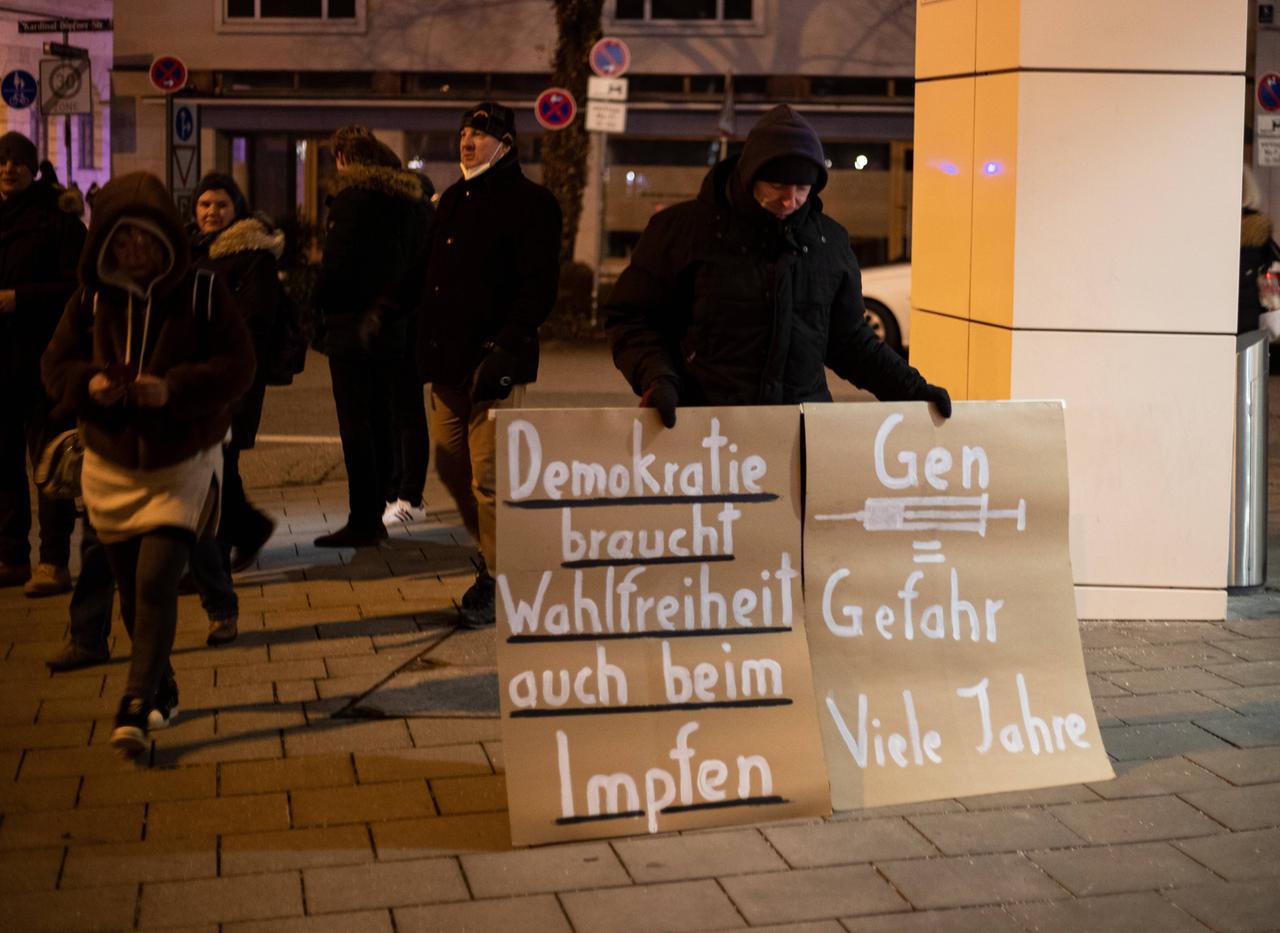 Kardinal-Döpfner-Str.
30
ZONE
Demokratie
braucht
Wahlfreiheit
auch beim
Impfen
Gen
=
Gefahr
Viele Jahre